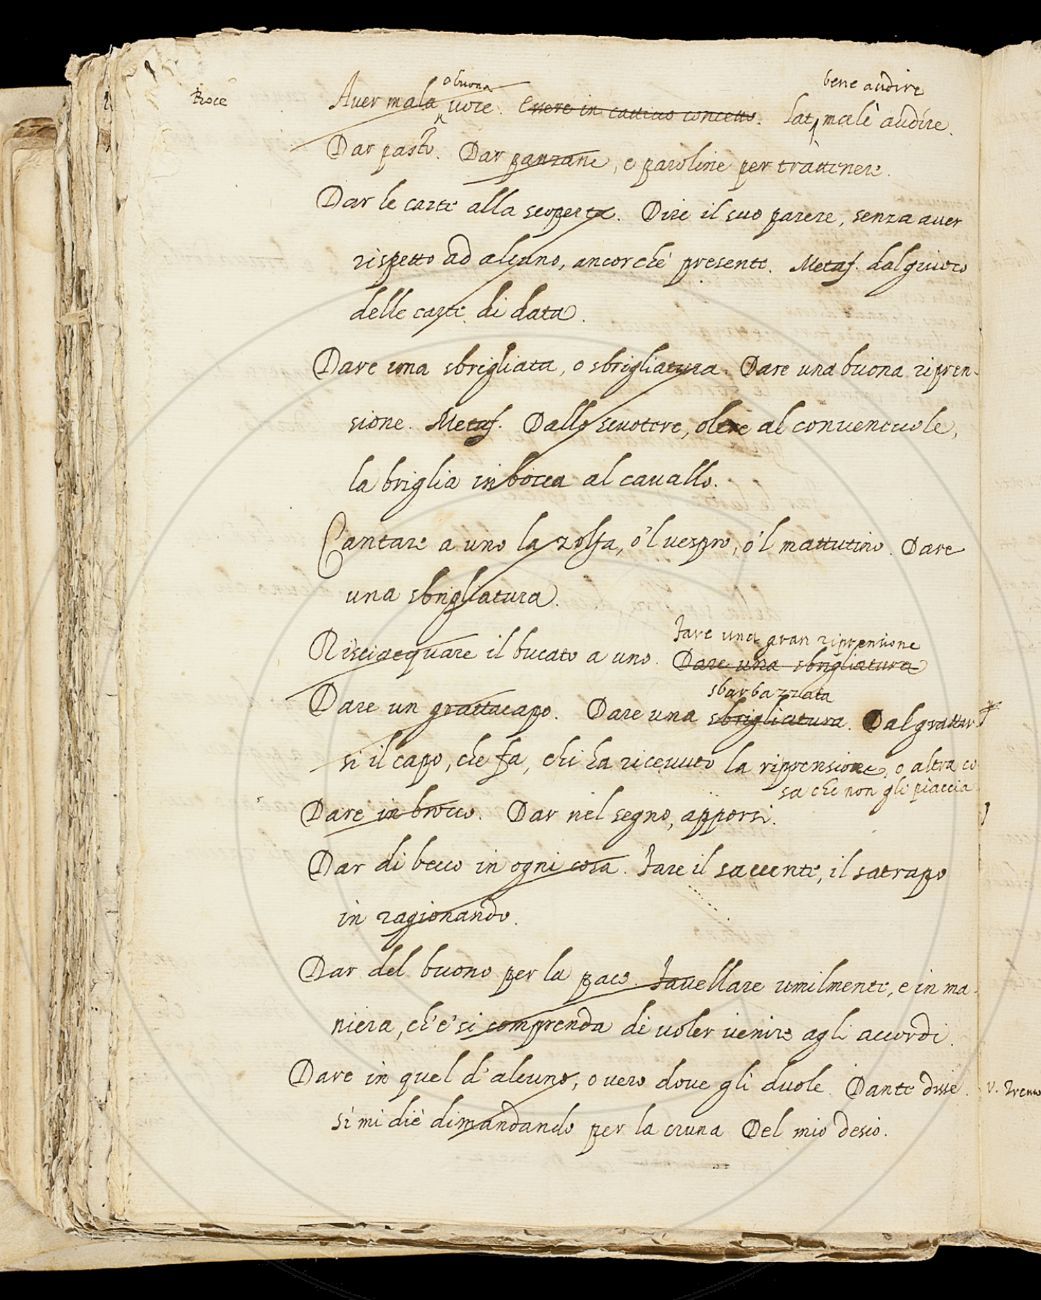 o buona
bene audire
Roce Aver mala voce. Essere in cattivo concetto. Lat. male audire.
Dar pasto. Dar panzane, e paroline per trattenere.
Dar le carte alla scoperta. Dire il suo parere, senza aver
rispetto ad alcuno, ancorche presente. Metaf. dal giuoco
delle carte di data.
Dare una sbrigliata, o sbrigliatura. Dare una buona ripren-
sione. Metaf. Dallo scuotere, oltre al convenevole,
la briglia in bocca al cavallo.
Cantare a uno la zolfa, o'l vespro, o'l mattutino. Dare
una sbrigliatura.
fare una gran riprensione
Risciacquare il bucato a uno. Dare una sbrigliatura
sbarbazzata
Dare un grattacapo. Dare una sbrigliatura. Dal grattar
si il capo, che fa, chi ha ricevuto la riprensione, o altra co
sa che non gli piaccia
Dare in brocco. Dar nel segno, apporsi.
Dar di becco in ogni cosa. Fare il saccente, il satrapo
in ragionando.
Dar del buono per la pace. Favellare umilmente, e in ma-
niera, ch'e' si comprenda di voler venire agli accordi.
Dare in quel d'alcuno, o vero dove gli duole. Dante disse.
Si mi diè dimandando per la cruna Del mio desio.